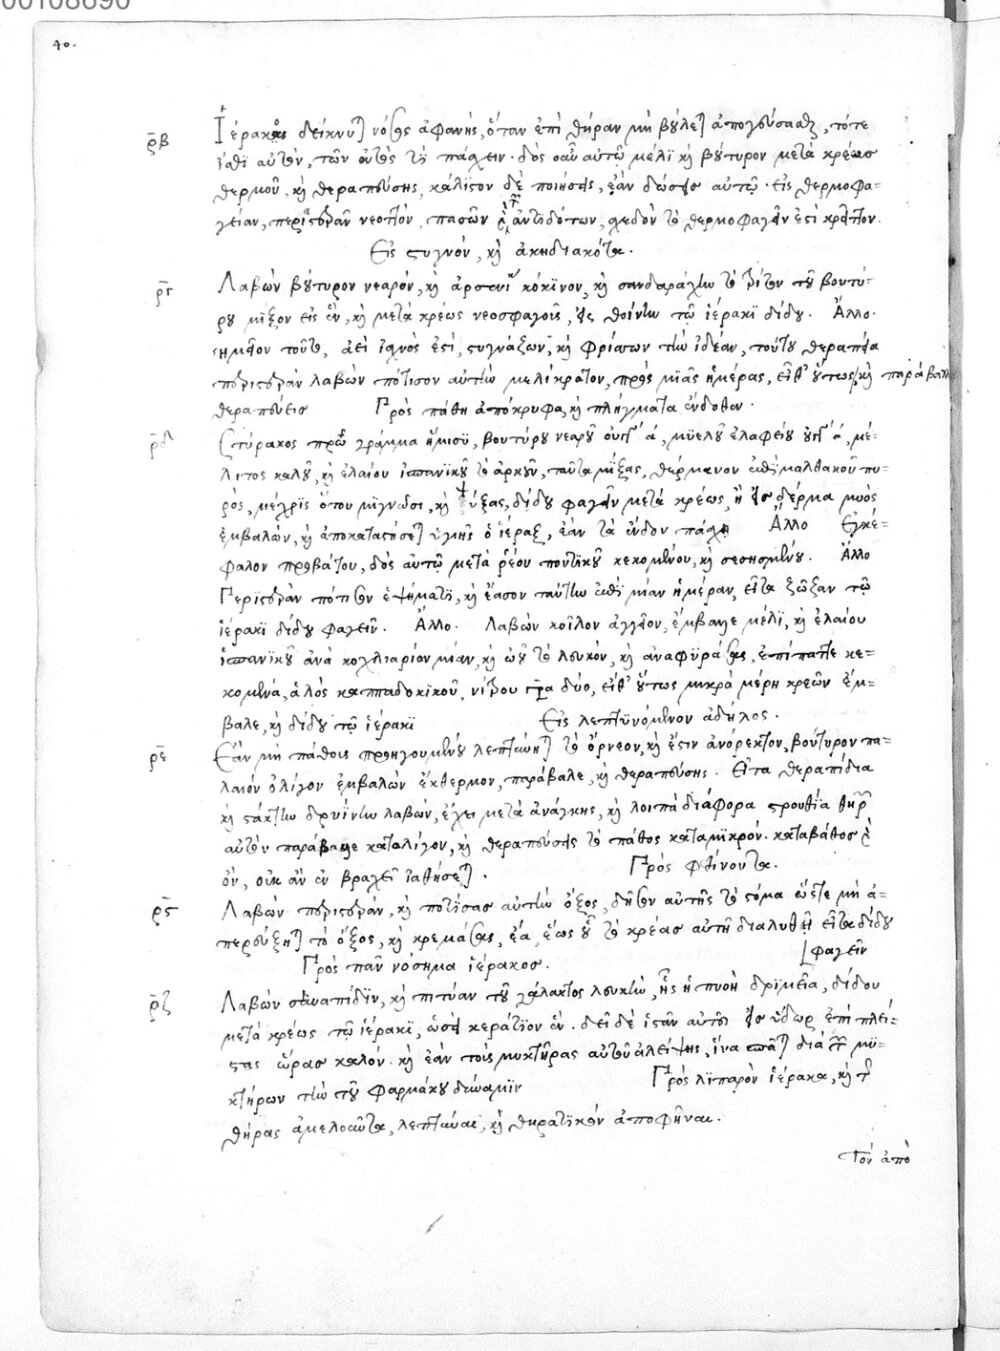 00108690
40.
ρ̄β Ἱέρακος δείκνυται νόσος ἀφανής, ὅταν ἐπὶ θήραν μὴ βούλεται ἀπολύσασθαι, τότε
ἴσθι αὐτὸν, τῶν ἐντὸς τὶ πάσχειν. δὸς οὖν αὐτῷ μέλι κỳ βούτυρον μετὰ κρέως
θερμοῦ, κỳ θεραπεύσεις, κάλιστον δὲ ποιήσεις, ἐὰν δώσεις αὐτῷ εἰς θερμοφα-
γείαν, περιστερὰν νεοττὸν, πασῶν γὰρ τῶν ἀντιδότων, σχεδὸν τὸ θερμοφαγεῖν ἐστὶ κρεῖττον.
Εἰς στυγνόν, κỳ ἀκηδιακότα.
ρ̄γ Λαβὼν βούτυρον νεαρόν, κỳ ἀρσενικὸν κόκινον, κỳ σανδαράχην τὸ τρίτον τοῦ βουτύ-
ρου μίξον εἰς ἓν, κỳ μετὰ κρέως νεοσφαγοῦς, εἰς θοίνην τῷ ἱέρακι δίδου. Ἄλλο.
σημεῖον τοῦτο, ἀεὶ ἰσχνός ἐστὶ, στυγνάζων, κỳ φρίττων τὴν ἰδέαν, τούτου θεραπεία
περιστερὰν λαβὼν πότισον αὐτὴν μελίκρατον, πρὸς μιᾶς ἡμέρας, εἶθ' οὕτως κỳ παράβαλε
θεραπεύεις Πρὸς πάθη ἀπόκρυφα, κỳ πλήγματα ἔνδοθεν.
ρ̄δ Στύρακος πρώτου γράμμα ἥμισυ, βουτύρου νεαροῦ οὐγγ' ά, μυελοῦ ἐλαφείου οὐγγ' ά, μέ-
λιτος καλοῦ, κỳ ἐλαίου ἱσπανικοῦ τὸ ἀρκοῦν, ταῦτα μίξας, θέρμανον ἐπὶ μαλθακοῦ πυ-
ρὸς, μέχρις ὅτου μιγνῶσι, κỳ ψύξας, δίδου φαγεῖν μετὰ κρέως, ἢ εἰς δέρμα μυὸς
ἐμβαλών, κỳ ἀποκαταστήσεται ὑγιὴς ὁ ἱέραξ, ἐὰν τὰ ἔνδον πάσχῃ Ἄλλο Ἐγκέ-
φαλον προβάτου, δὸς αὐτῷ μετὰ ῥέου ποντικοῦ κεκομμένου, κỳ σεσησμένου. Ἄλλο
Περιστερὰν πότισον ἑψήματι, κỳ ἔασον ταύτην ἐπὶ μίαν ἡμέραν, εἶτα ζῶσαν τῷ
ἱέρακι δίδου φαγεῖν. Ἄλλο. Λαβὼν κοῖλον ἀγγεῖον, ἔμβαλε μέλι, κỳ ἐλαίου
ἱσπανικοῦ ἀνὰ κοχλιαρίον μίαν, κỳ ὠοῦ τὸ λευκὸν, κỳ ἀναφυράσας, ἐπίπαττε κε-
κομμένα, ἁλὸς καππαδοκικοῦ, νίτρου δύο, εἶθ' οὕτως μικρὰ μέρη κρεῶν ἔμ-
βαλε, κỳ δίδου τῷ ἱέρακι Εἰς λεπτυνόμενον ἀδήλος.
ρ̄ε Ἐὰν μὴ πάθους προηγουμένου λεπτύνηται τὸ ὄρνεον, κỳ ἔστιν ἀνόρεκτον, βούτυρον πα-
λαιὸν ὀλίγον ἐμβαλὼν ἔκθερμον, παράβαλε, κỳ θεραπεύσεις. Εἶτα θεραπίδια
κỳ στάκτην δρυΐνην λαβών, ἔχει μετὰ ἀνάγκης, κỳ λοιπὰ διάφορα στρουθία
αὐτὸν παράβαλε κατ' ὀλίγον, κỳ θεραπεύσεις τὸ πάθος κατὰ μικρόν. καταβάθος γὰρ
ὂν, οὐκ ἂν ἐν βραχεῖ ἰαθήσεται. Πρὸς φθίνοντα.
ρ̄ς Λαβὼν περιστερὰν, κỳ ποτίσας αὐτὴν ὄξος, δῆσον αὐτῆς τὸ στόμα ὥστε μὴ ἀ-
περεύξηται τὸ ὄξος, κỳ κρεμάσας, ἔα, ἕως οὗ τὸ κρέας αὐτῆ διαλυθῇ εἶτα δίδου
φαγεῖν
Πρὸς πᾶν νόσημα ἱέρακος.
ρ̄ζ Λαβὼν σίναπίδιν, κỳ πιτύαν τοῦ γάλακτος λευκὴν, ἧς ἡ πνοὴ δριμεῖα, δίδου
μετὰ κρέως τῷ ἱέρακι, ὡσεὶ κεράτιον ἕν. δεῖ δὲ ἱστᾶν αὐτὸν εἰς ὕδωρ ἐπὶ πλεί-
στας ὥρας καλόν. κỳ ἐὰν τοὺς μυκτῆρας αὐτοῦ ἀλείψῃς, ἵνα σπᾶται διὰ τῶν μυ-
κτήρων τὴν τοῦ φαρμάκου δύναμιν Πρὸς λιπαρὸν ἱέρακα, κỳ τῆς
θήρας ἀμελοῦντα, λεπτύναι, κỳ θηρατικὸν ἀποφῆναι.
Τὸν ἀπὸ